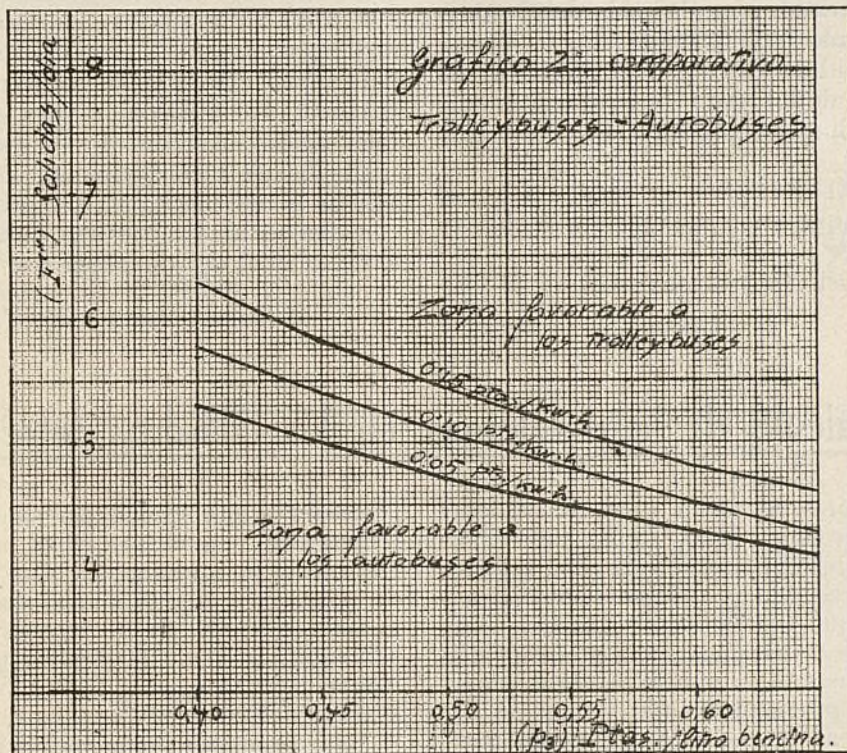 Grafico 2º comparativo.
Trolleybuses - Autobuses.
(F''') Salidas/dia
8
7
6
5
4
Zona favorable a
los Trolleybuses
0'15 ptas/kw.h.
0'10 pts/kw.h.
0'05 pts/kw.h.
Zona favorable a
los autobuses
0,40
0,45
0,50
0,55
0,60
(p₃) Ptas./litro bencina.